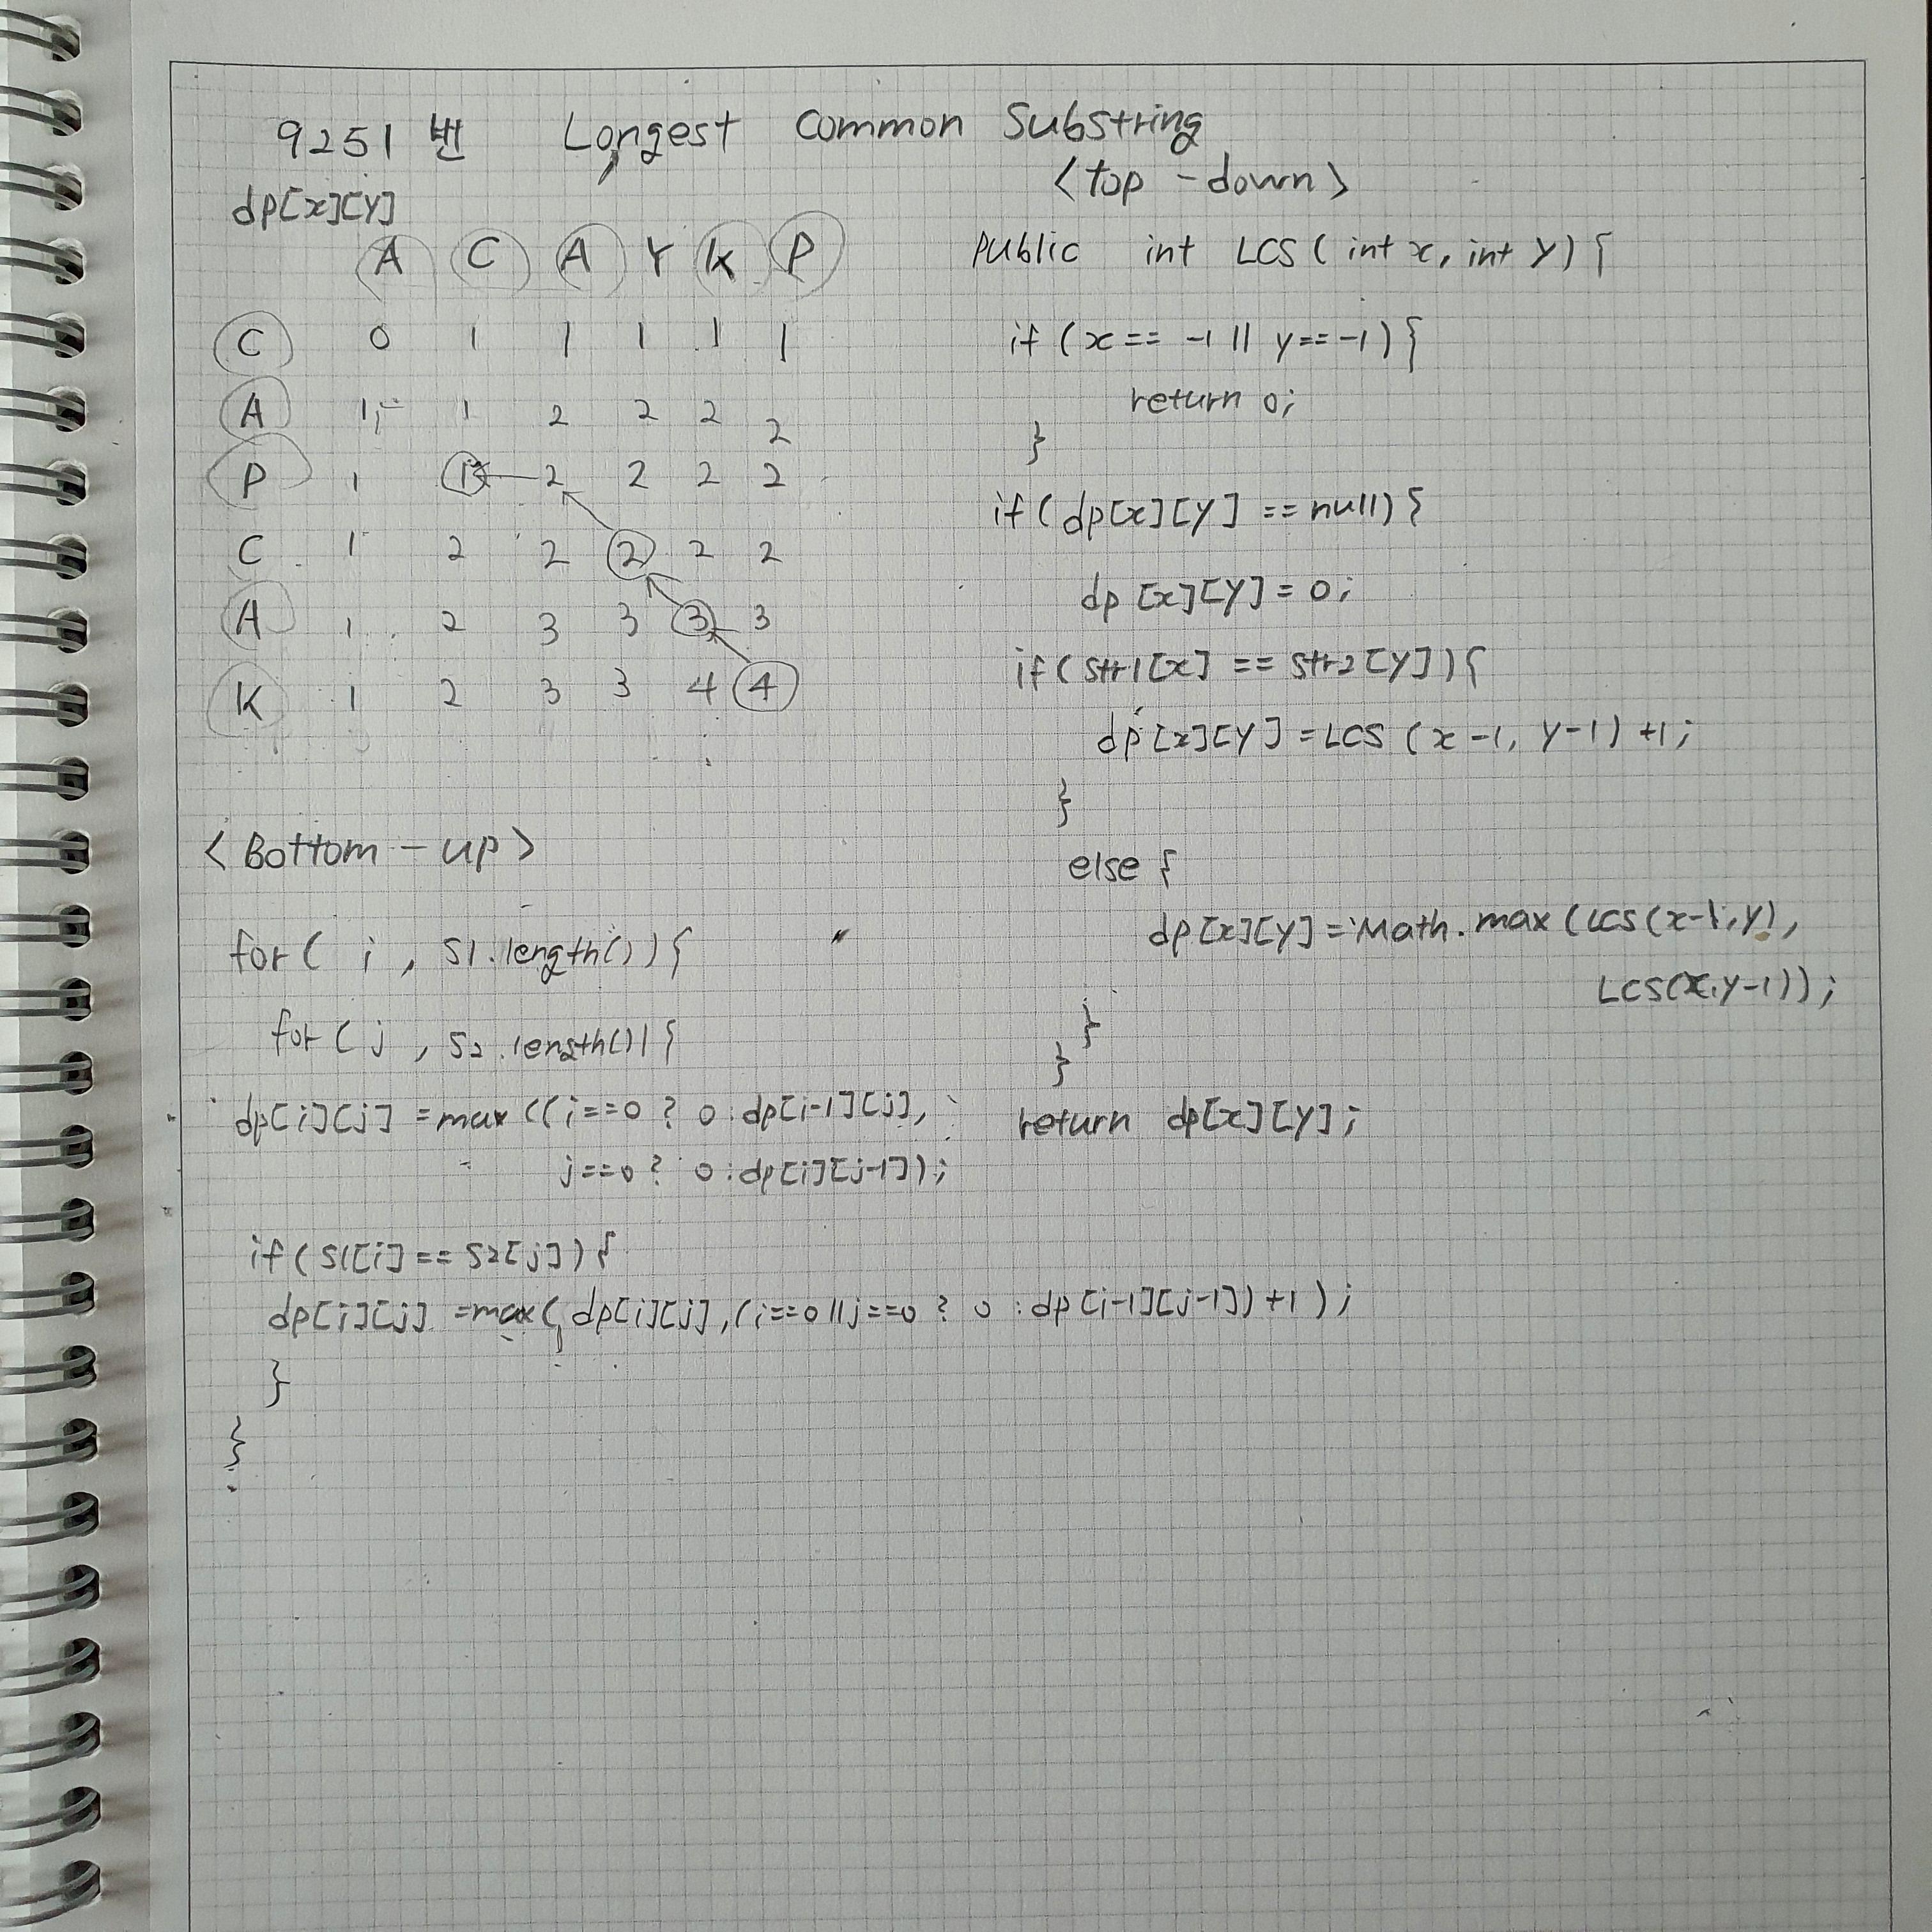 9251번 Longest Common Substring
dp[x][y]
A C A Y K P
C 0 1 1 1 1 1
A 1 1 2 2 2 2
P 1 1 2 2 2 2
C 1 2 2 2 2 2
A 1 2 3 3 3 3
K 1 2 3 3 4 4
<Bottom-up>
for( i , S1.length()){
for( j , S2.length()){
dp[i][j] = max((i==0 ? 0:dp[i-1][j],
j==0 ? 0:dp[i][j-1]);
if(S1[i] == S2[j]){
dp[i][j] = max( dp[i][j],(i==0||j==0 ? 0 : dp[i-1][j-1])+1);
}
}
<top-down>
public int LCS( int x, int y) {
if (x == -1 || y == -1) {
return 0;
}
if( dp[x][y] == null) {
dp[x][y] = 0;
if( str1[x] == str2[y]){
dp[x][y] = LCS (x-1, y-1) +1;
}
else {
dp[x][y] = Math.max (LCS(x-1,y),
LCS(x,y-1));
}
}
return dp[x][y];